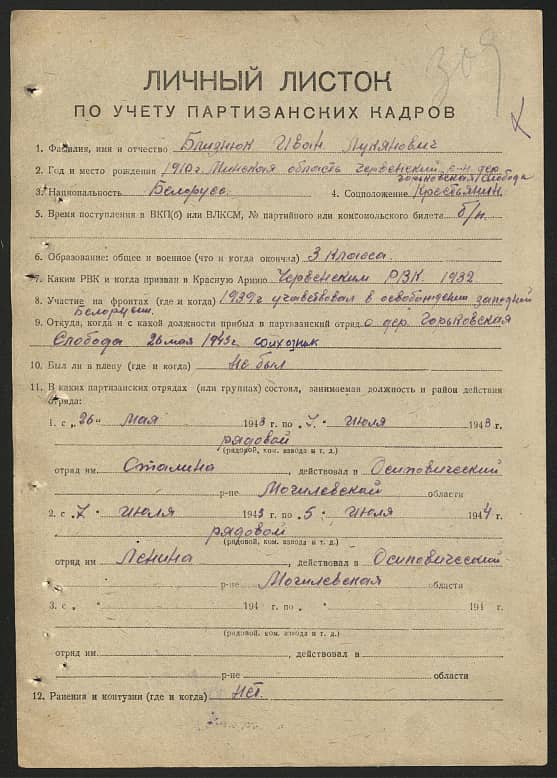 309
ЛИЧНЫЙ ЛИСТОК
ПО УЧЕТУ ПАРТИЗАНСКИХ КАДРОВ
1. Фамилия, имя и отчество Близнюк Иван Лукянович
2. Год и место рождения 1910г Минская область Червенский р-н дер
Горьковская Слобода
3. Национальность Белорусс. 4. Соцположение Крестьянин.
5. Время поступления в ВКП(б) или ВЛКСМ, № партийного или комсомольского билета б/п.
6. Образование: общее и военное (что и когда окончил) 3 класса
7. Каким РВК и когда призван в Красную Армию Червенским РВК 1932
8. Участие на фронтах (где и когда) 1939г учавствовал в освобождении западной
Белорусии.
9. Откуда, когда и с какой должности прибыл в партизанский отряд с дер Горьковская
Слобода 26 мая 1943г.
10. Был ли в плену (где и когда) Не был
11. В каких партизанских отрядах (или группах) состоял, занимаемая должность и район действия
отряда:
1. с „26" мая 1943 г. по „7" июля 1943 г.
рядовой
(рядовой, ком. взвода и т. д.)
отряд им. Сталина, действовал в Осиповический
р-не Могилевской области
2. с „7" июля 1943 г. по „5" июля 1944 г.
рядовой
(рядовой, ком. взвода и т. д.)
отряд им Ленина, действовал в Осиповический
р-не Могилевская области
3. с „ " 194 г. по „ " 194 г.
(рядовой, ком. взвода и т. д.)
отряд им., действовал в
р-не области
12. Ранения и контузии (где и когда) нет.